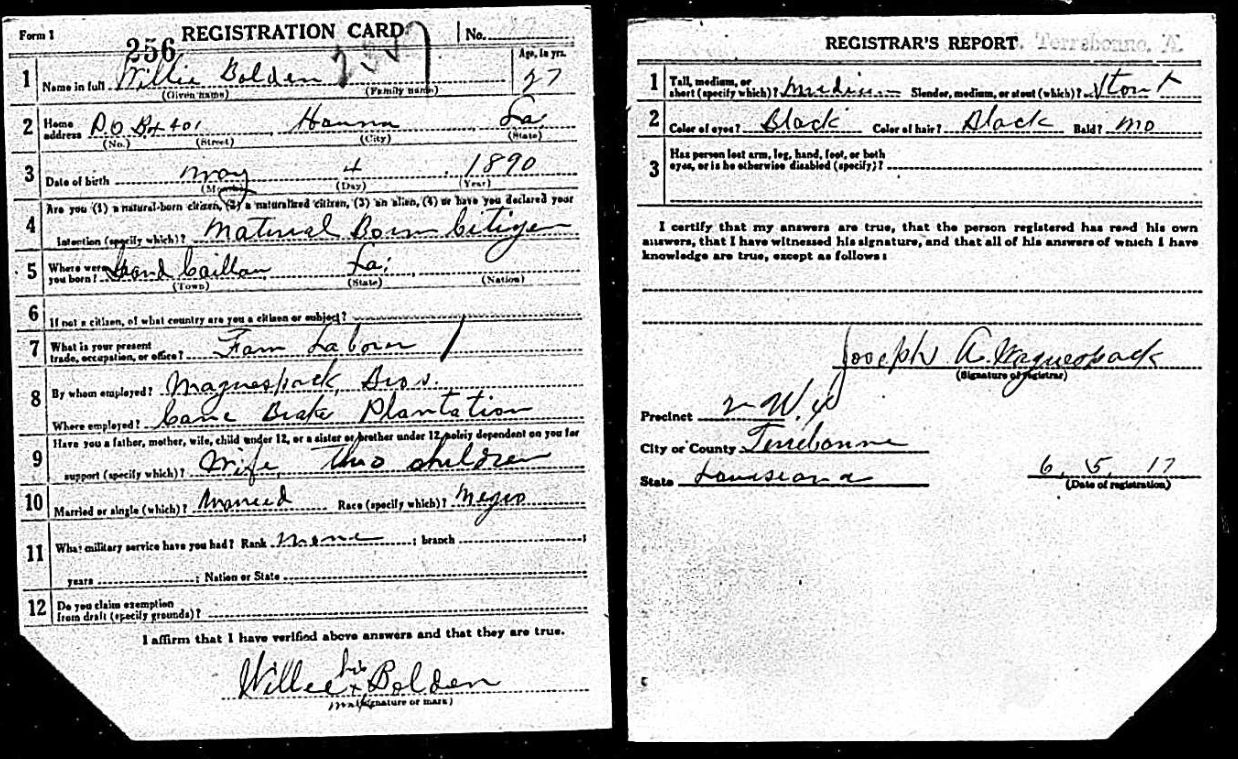 Form 1
256
REGISTRATION CARD
No.
1 Name in full Willie Bolden
(Given name) (Family name)
Age, in yrs.
27
2 Home address P.O. Bx 401 Houma La
(No.) (Street) (City) (State)
3 Date of birth May 4 1890
(Month) (Day) (Year)
4 Are you (1) a natural-born citizen, (2) a naturalized citizen, (3) an alien, (4) or have you declared your
intention (specify which)? Natural Born Citizen
5 Where were you born? Grand Caillou La.
(Town) (State) (Nation)
6 If not a citizen, of what country are you a citizen or subject?
7 What is your present
trade, occupation, or office? Farm Laborer
8 By whom employed? Waguespack Bros.
Where employed? Cane Brake Plantation
9 Have you a father, mother, wife, child under 12, or a sister or brother under 12, solely dependent on you for
support (specify which)? Wife, Two children
10 Married or single (which)? Married Race (specify which)? Negro
11 What military service have you had? Rank None ; branch ;
years ; Nation or State
12 Do you claim exemption
from draft (specify grounds)?
I affirm that I have verified above answers and that they are true.
Willie his x Bolden
mark (Signature or mark)
REGISTRAR'S REPORT. Terrebonne,
1 Tall, medium, or
short (specify which)? Medium Slender, medium, or stout (which)? Stout
2 Color of eyes? Black Color of hair? Black Bald? No
3 Has person lost arm, leg, hand, foot, or both
eyes, or is he otherwise disabled (specify)?
I certify that my answers are true, that the person registered has read his own
answers, that I have witnessed his signature, and that all of his answers of which I have
knowledge are true, except as follows:
Joseph A. Waguespack
(Signature of registrar)
Precinct 2 Wd
City or County Terrebonne
State Louisiana
6 5 17
(Date of registration)